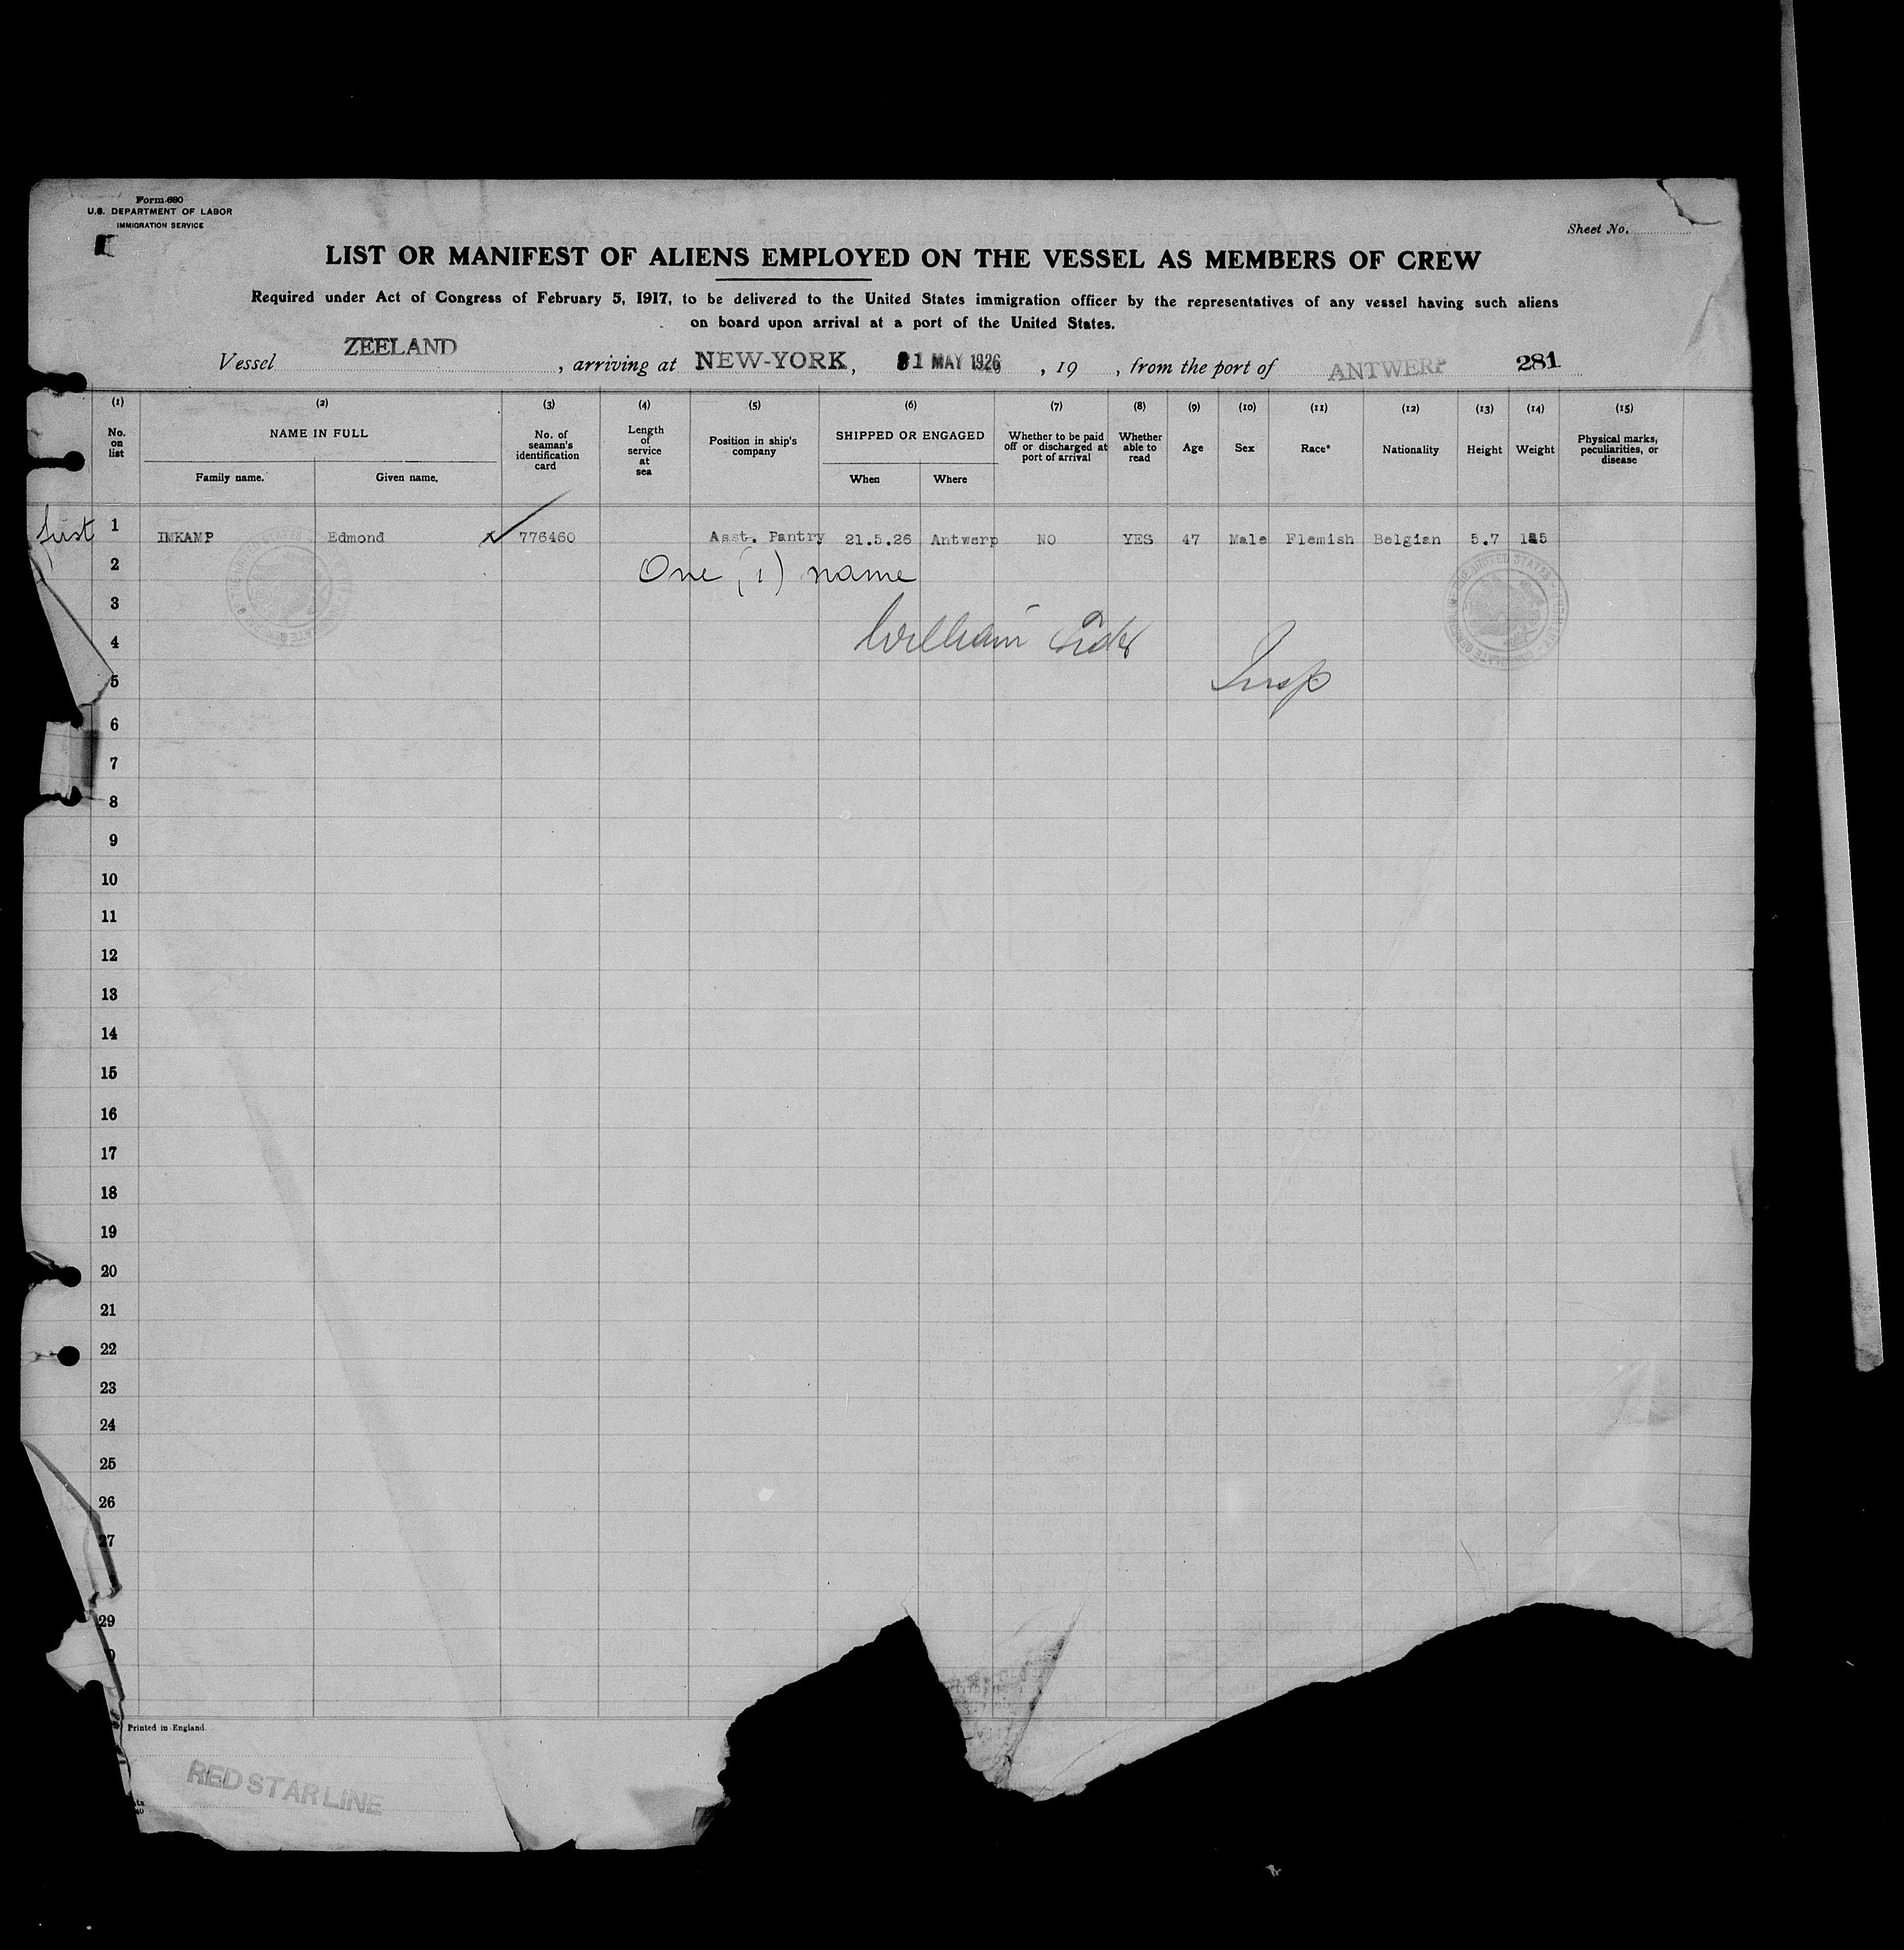 Form 680
U.S. DEPARTMENT OF LABOR
IMMIGRATION SERVICE
Sheet No.
LIST OR MANIFEST OF ALIENS EMPLOYED ON THE VESSEL AS MEMBERS OF CREW
Required under Act of Congress of February 5, 1917, to be delivered to the United States immigration officer by the representatives of any vessel having such aliens
on board upon arrival at a port of the United States.
Vessel ZEELAND, arriving at NEW-YORK, 31 MAY 1926, 19 , from the port of ANTWERP 281
(1) (2) (3) (4) (5) (6) (7) (8) (9) (10) (11) (12) (13) (14) (15)
No. on list
NAME IN FULL
Family name. Given name.
No. of seaman's identification card
Length of service at sea
Position in ship's company
SHIPPED OR ENGAGED
When Where
Whether to be paid off or discharged at port of arrival
Whether able to read
Age
Sex
Race*
Nationality
Height
Weight
Physical marks, peculiarities, or disease
first 1 IMKAMP Edmond 776460 Asst. Pantry 21.5.26 Antwerp NO YES 47 Male Flemish Belgian 5.7
2 One (1) name
3
4 William
5 Insp
6
7
8
9
10
11
12
13
14
15
16
17
18
19
20
21
22
23
24
25
26
27
29
Printed in England.
RED STAR LINE